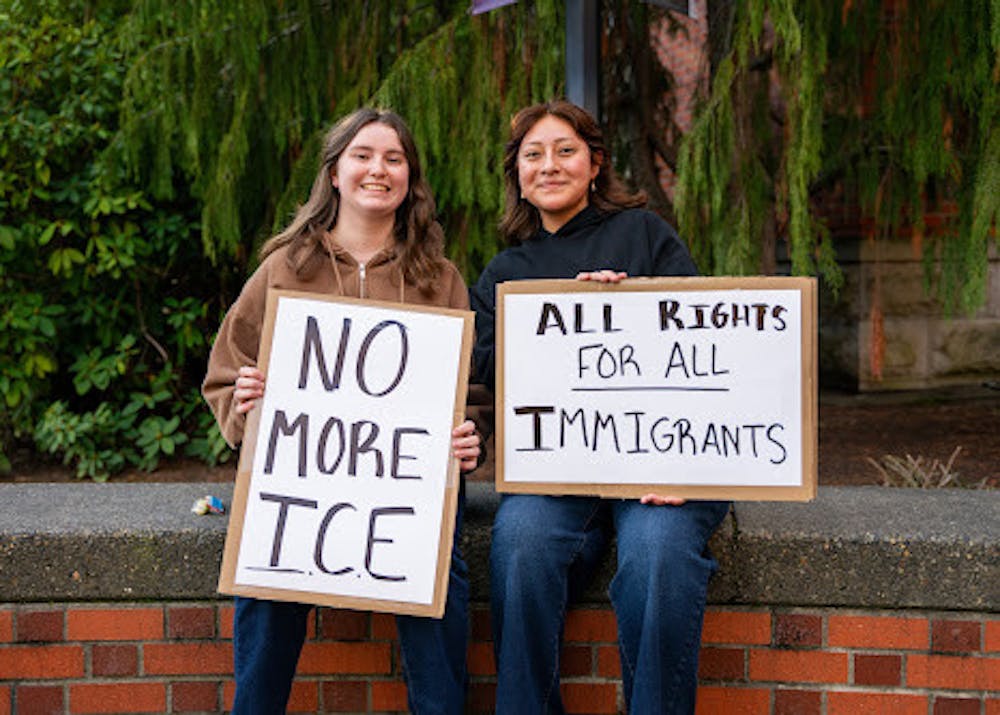 NO
MORE
I.C.E
ALL RIGHTS
FOR ALL
IMMIGRANTS